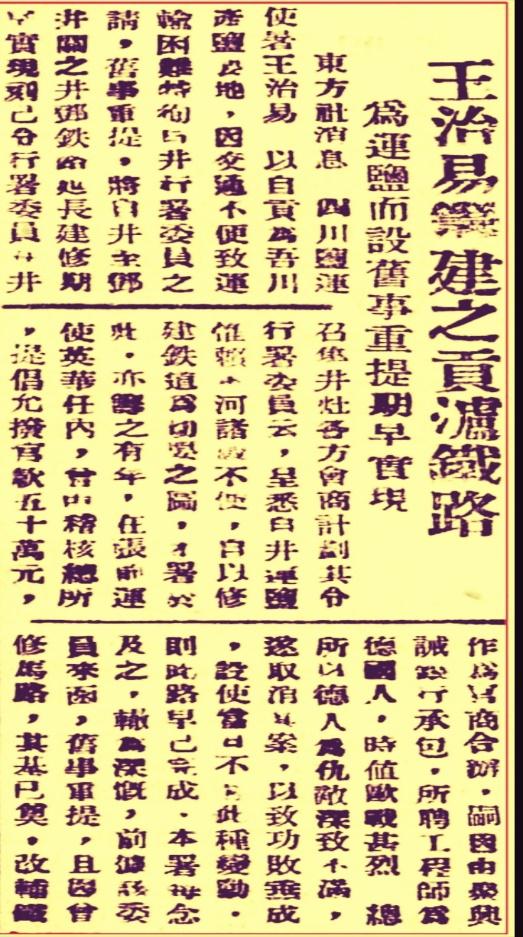 王治易籌建之貢瀘鐵路
爲運鹽而設舊事重提期早實現
東方社消息 四川鹽運
使署王治易 以自貢爲吾川
產鹽之地，因交通不便致運
輸困難特徇自井行署委員之
請，舊事重提，將自井至鄧
井關之井鄧鉄路延長建修期
早實現刻已令行署委員
召集井灶各方會商計劃其令
行署委員云，呈悉自井運鹽
惟賴 河諸 不便，自以修
建鉄道爲切要之圖，本署於
此，亦籌之有年，在張前運
使英華任內，曾由稽核總所
，提倡允撥官欵五十萬元，
作爲官商合辦，嗣因由聚興
誠銀行承包，所聘工程師爲
德國人，時值歐戰甚烈 總
所以德人爲仇敵深致不滿，
遂取消其案，以致功敗垂成
，設使當日不 此種變動，
則此路早已完成，本署每念
及之，輒爲深慨，前據該委
員來函，舊事重提，且因曾
修馬路，其基已奠，改輔鐵